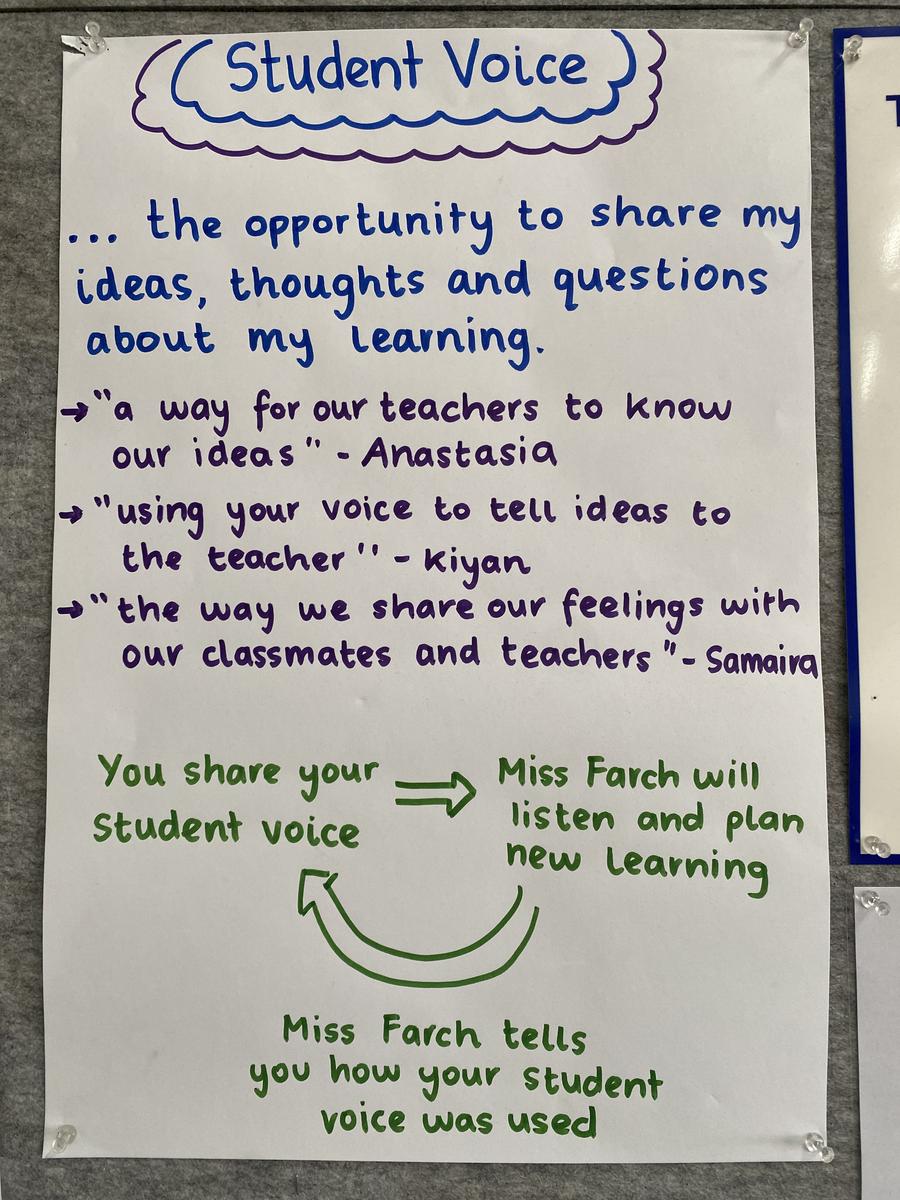 Student Voice
... the opportunity to share my
ideas, thoughts and questions
about my learning.
→"a way for our teachers to know
our ideas" - Anastasia
→"using your voice to tell ideas to
the teacher" - Kiyan
→"the way we share our feelings with
our classmates and teachers" - Samaira
You share your
student voice
Miss Farch will
listen and plan
new learning
Miss Farch tells
you how your student
voice was used
T